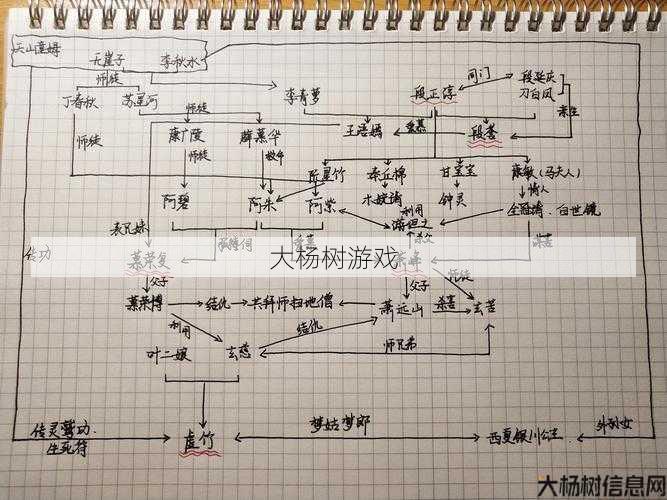 天山童姥
无崖子 李秋水
师徒
丁春秋 苏星河
李青萝
段正淳
同门
段延庆
刀白凤
亲生
师徒
康广陵 薛慕华
王语嫣
爱慕
段誉
师徒
师徒
阮星竹 秦红棉 甘宝宝 康敏(马夫人)
情人
阿碧 阿朱 阿紫 木婉清 钟灵 全冠清、白世镜
利用
游坦之
表兄妹
杀父
传功
慕容复
大杨树游戏
师徒
父子
父子
慕容博 结仇 共拜师扫地僧 萧远山 杀害 玄苦
利用
结仇
叶二娘 玄慈 师兄弟
传灵鹫功、
生死符
虚竹 梦姑梦郎 西夏银川公主
外孙女
大杨树信息网